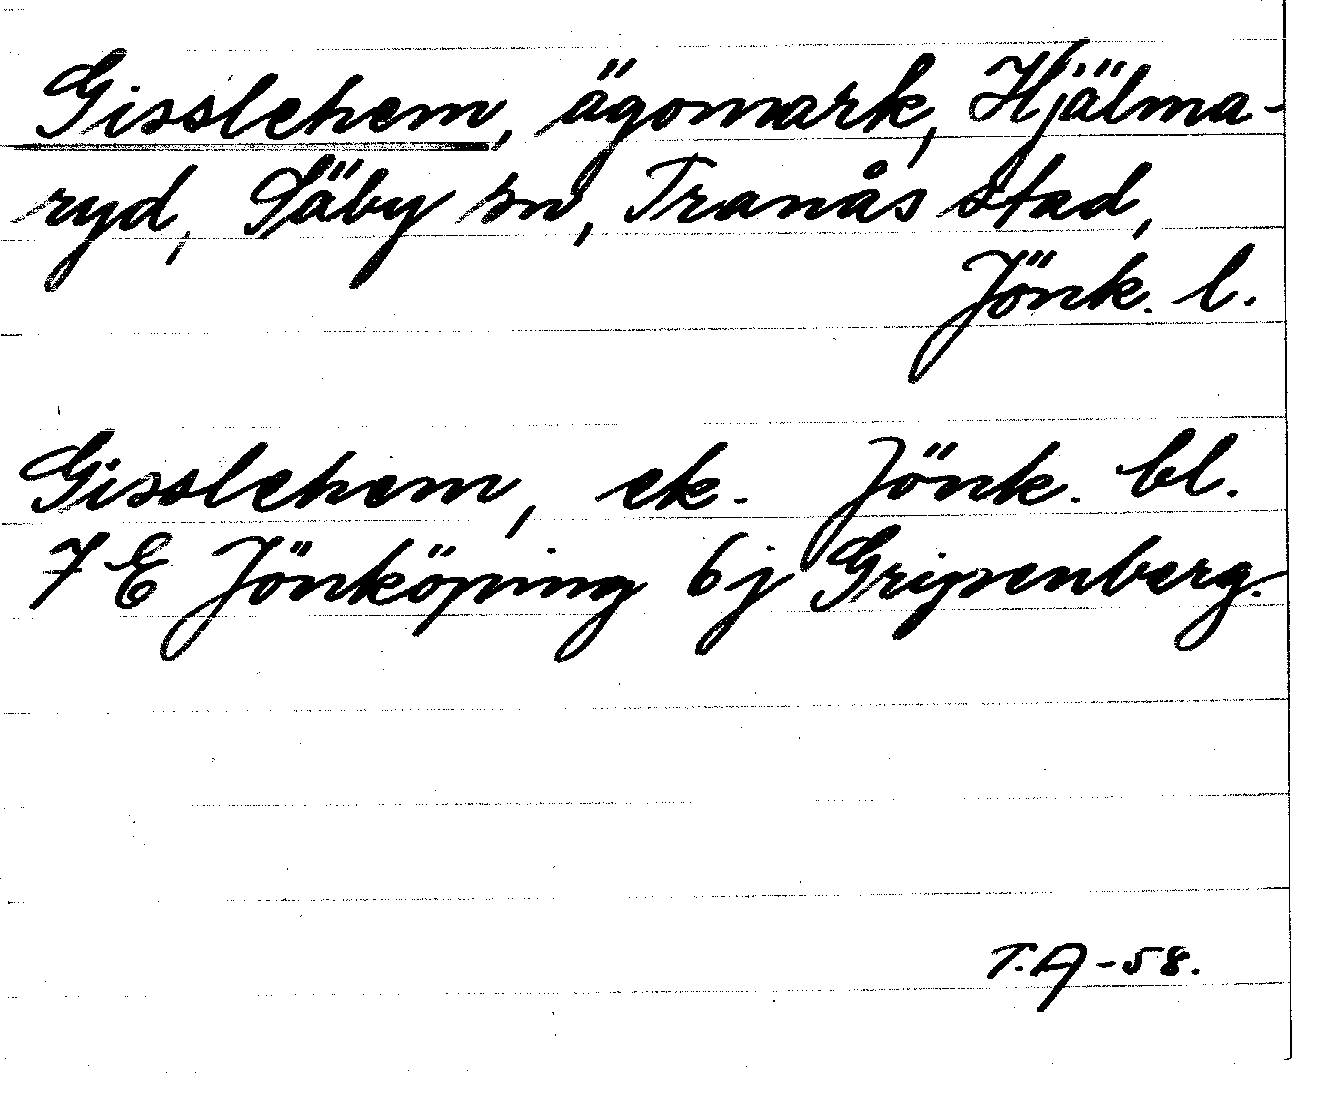 Gisslehem, ägomark, Hjälma-
ryd, Säby sn, Tranås stad,
Jönk. l.
Gisslehem, ek. Jönk. bl.
7 E Jönköping 6j Gripenberg.
T.A-58.